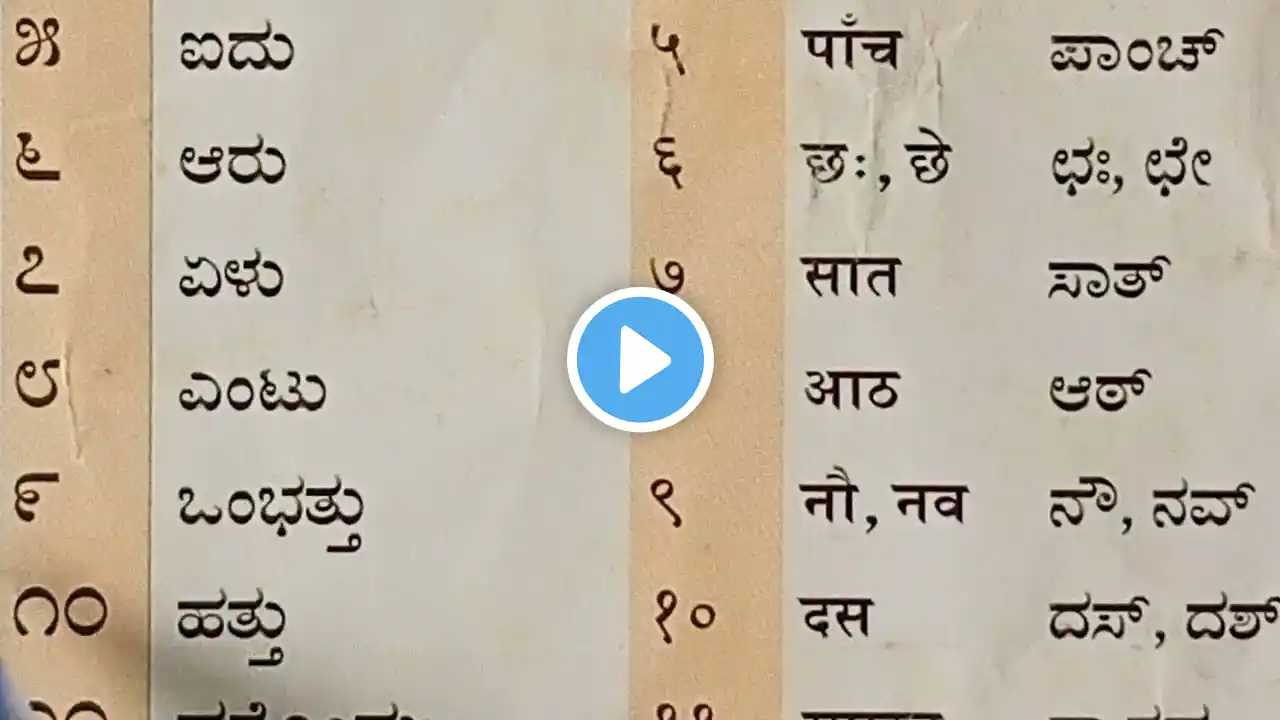 ೫ ಐದು ५ पाँच ಪಾಂಚ್
೬ ಆರು ६ छः, छे ಛಃ, ಛೇ
೭ ಏಳು ७ सात ಸಾತ್
೮ ಎಂಟು आठ ಆಠ್
೯ ಒಂಭತ್ತು ९ नौ, नव ನೌ, ನವ್
೧೦ ಹತ್ತು १० दस ದಸ್, ದಶ್